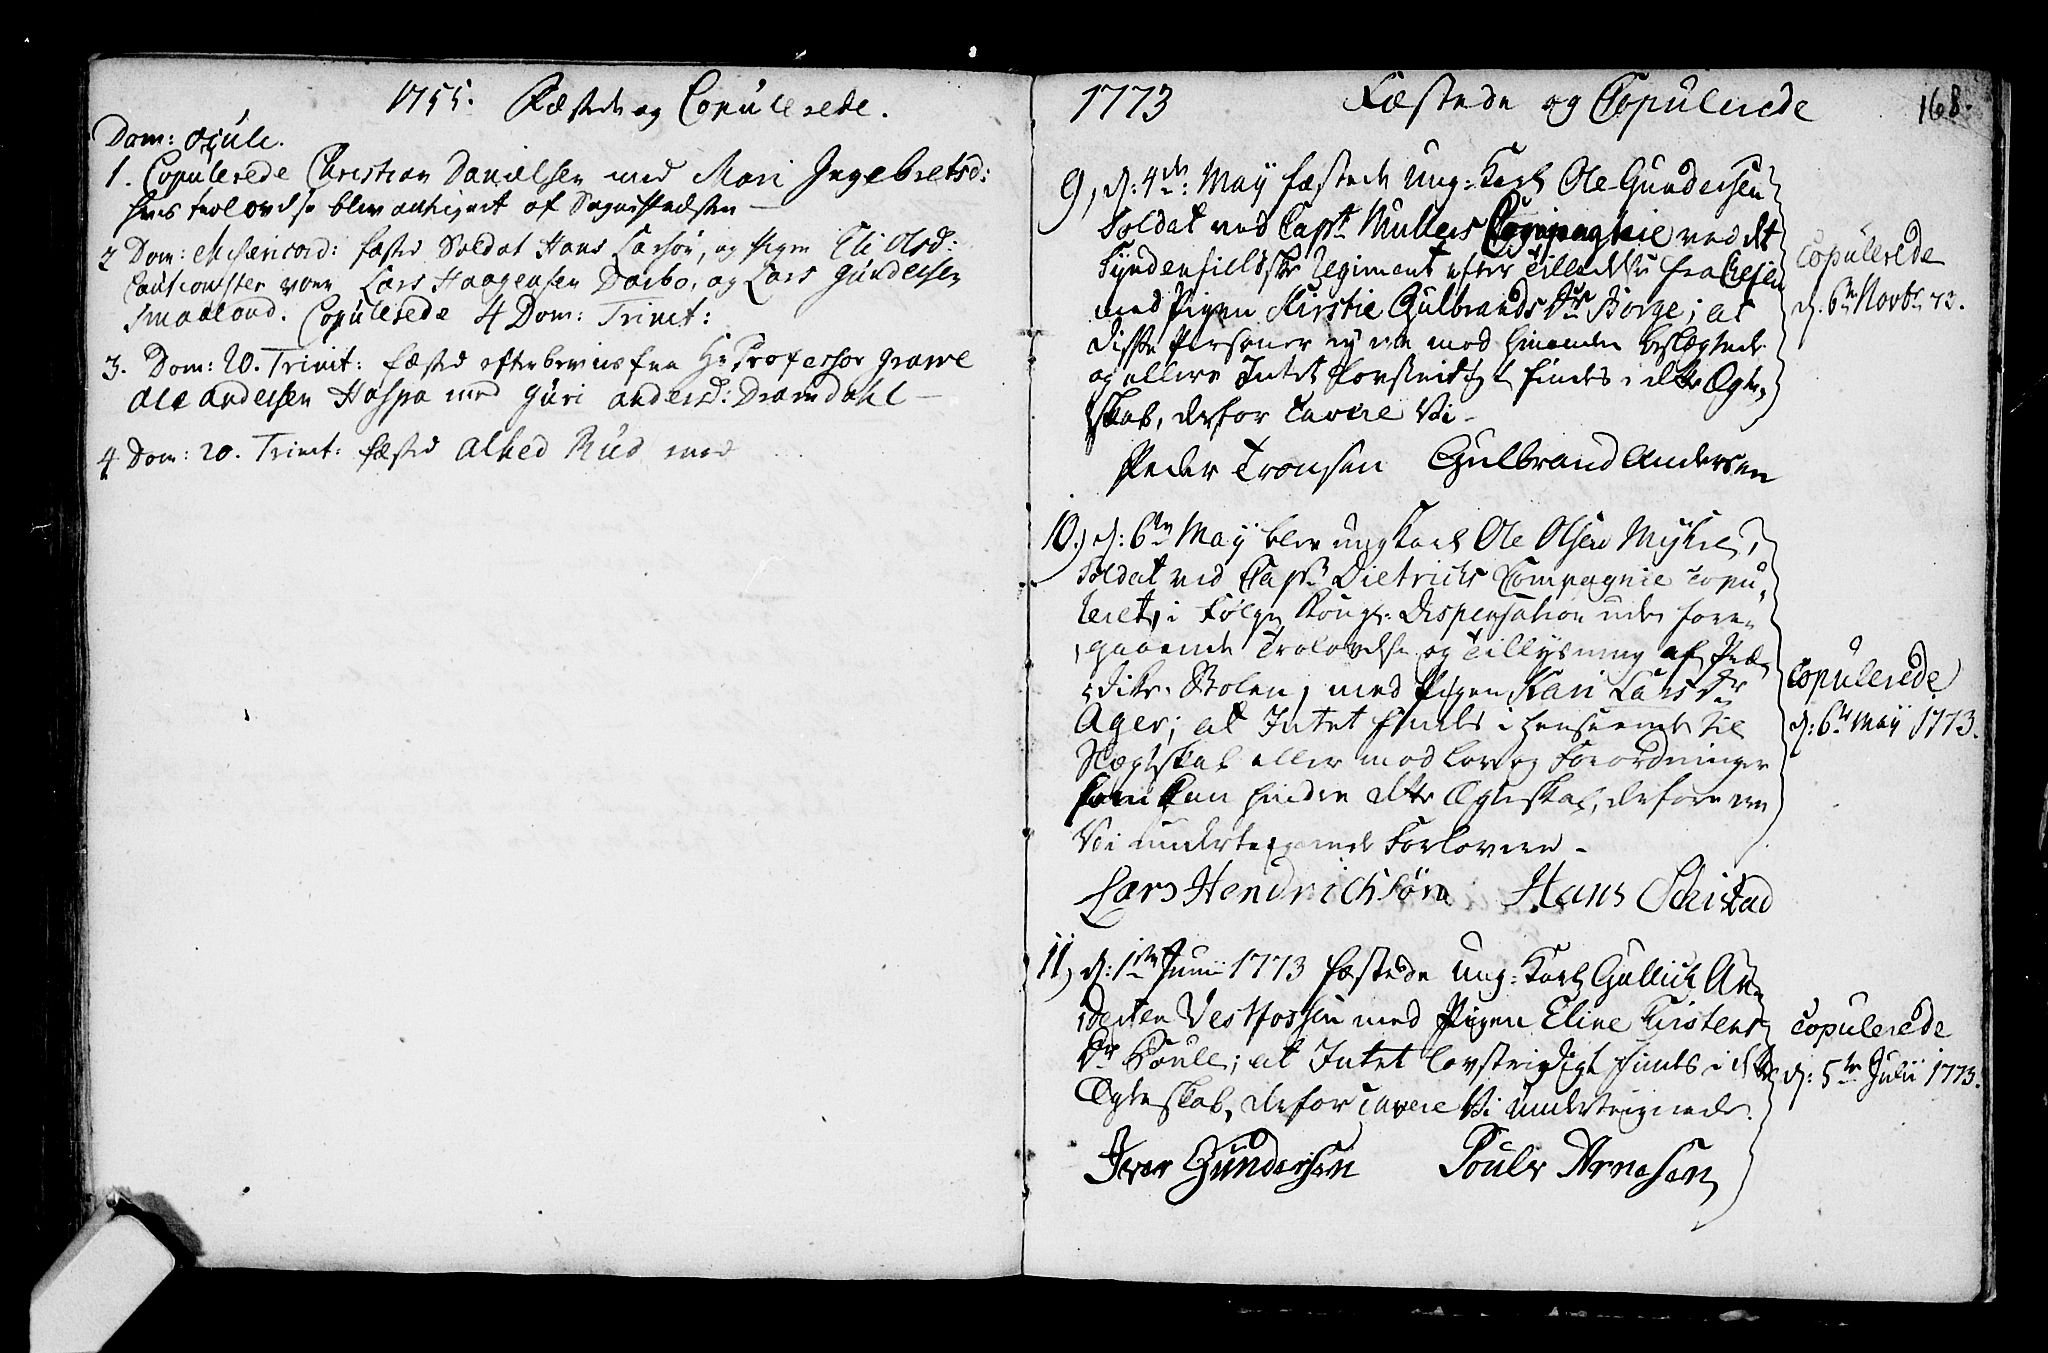 1755. Fæstede og Copulerede.
Dom: Ocul:
1. Copulerede Christian Danielsen med Mari Ingebretsd:
hvis trolovelse blev antegnet af Sogneprästen
2 Dom: Misericord: fæsted Soldat Hans Larsön, og Pigen Eli Olsd:
Cautionister vare Lars Haagensen Darbo, og Lars Gundersen
Smaalond. Copulerede 4 Dom: Trinit:
3. Dom: 20. Trinit: fæsted efter beviis fra Hr Professor Grawe
Ole Andersen Haspa med Guri Andersd: Dramdahl
4 Dom: 20. Trinit: fæsted Alhed Rud med
1773 Fæstede og Copulerede 168.
9, d: 4de: May fæstede Ung-Karl Ole Gundersen
Soldat ved Capt: Mullers Compagnie ved det
Syndenfieldske Regiment efter Tilladelse fra Chefen
med Pigen Kirstie Gulbrands Dr Borge; at
disse Personer ey ere med hinanden beslægtede
og ellers Intet Lovstridigt findes i dette Ægte-
skab, derfor Cavere Vi
Peder Tronsen Gulbrand Andersen
Copulerede
d. 6te Novbr 73.
10.) d: 6te May blev ung Karl Ole Olsen Myhre,
Soldat ved Capt: Dietrichs Compagnie Copu-
leret, i Følge Kongl: Dispensation uden fore-
gaaende Trolovelse og Tillysning af Præ-
dike-Stolen, med Pigen Kari Lars Dr
Ager; at Intet findes i henseende til
Slægtskab eller mod Lov og Forordninger
som kan hindre dette Ægteskab, derfore ere
Vi undertegnede Forlovere
Lars Hendrichsörn Hans Seistad
Copulerede
d: 6te May 1773.
11, d: 1ste Junii 1773 fæstede Ung-Karl Gullich An-
dersen Vestfossen med Pigen Eline Kirstens
Dr Houle; at Intet lovstridigt findes i dette
Ægteskab, derfor Cavere Vi undertegnede.
Iver Gundersen Poule Arnesen
Copulerede
d: 5te Julii 1773.